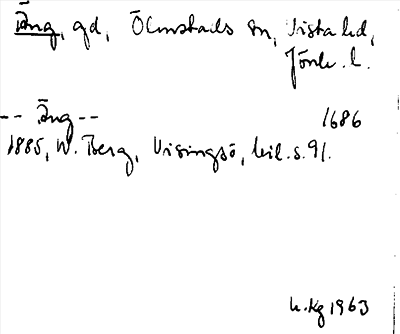 Äng, gd, Ölmstads sn, Vista hd,
Jönk. l.
-- Äng -- 1686
1885, W. Berg, Visingsö, bil. s. 91.
h. Kg 1963